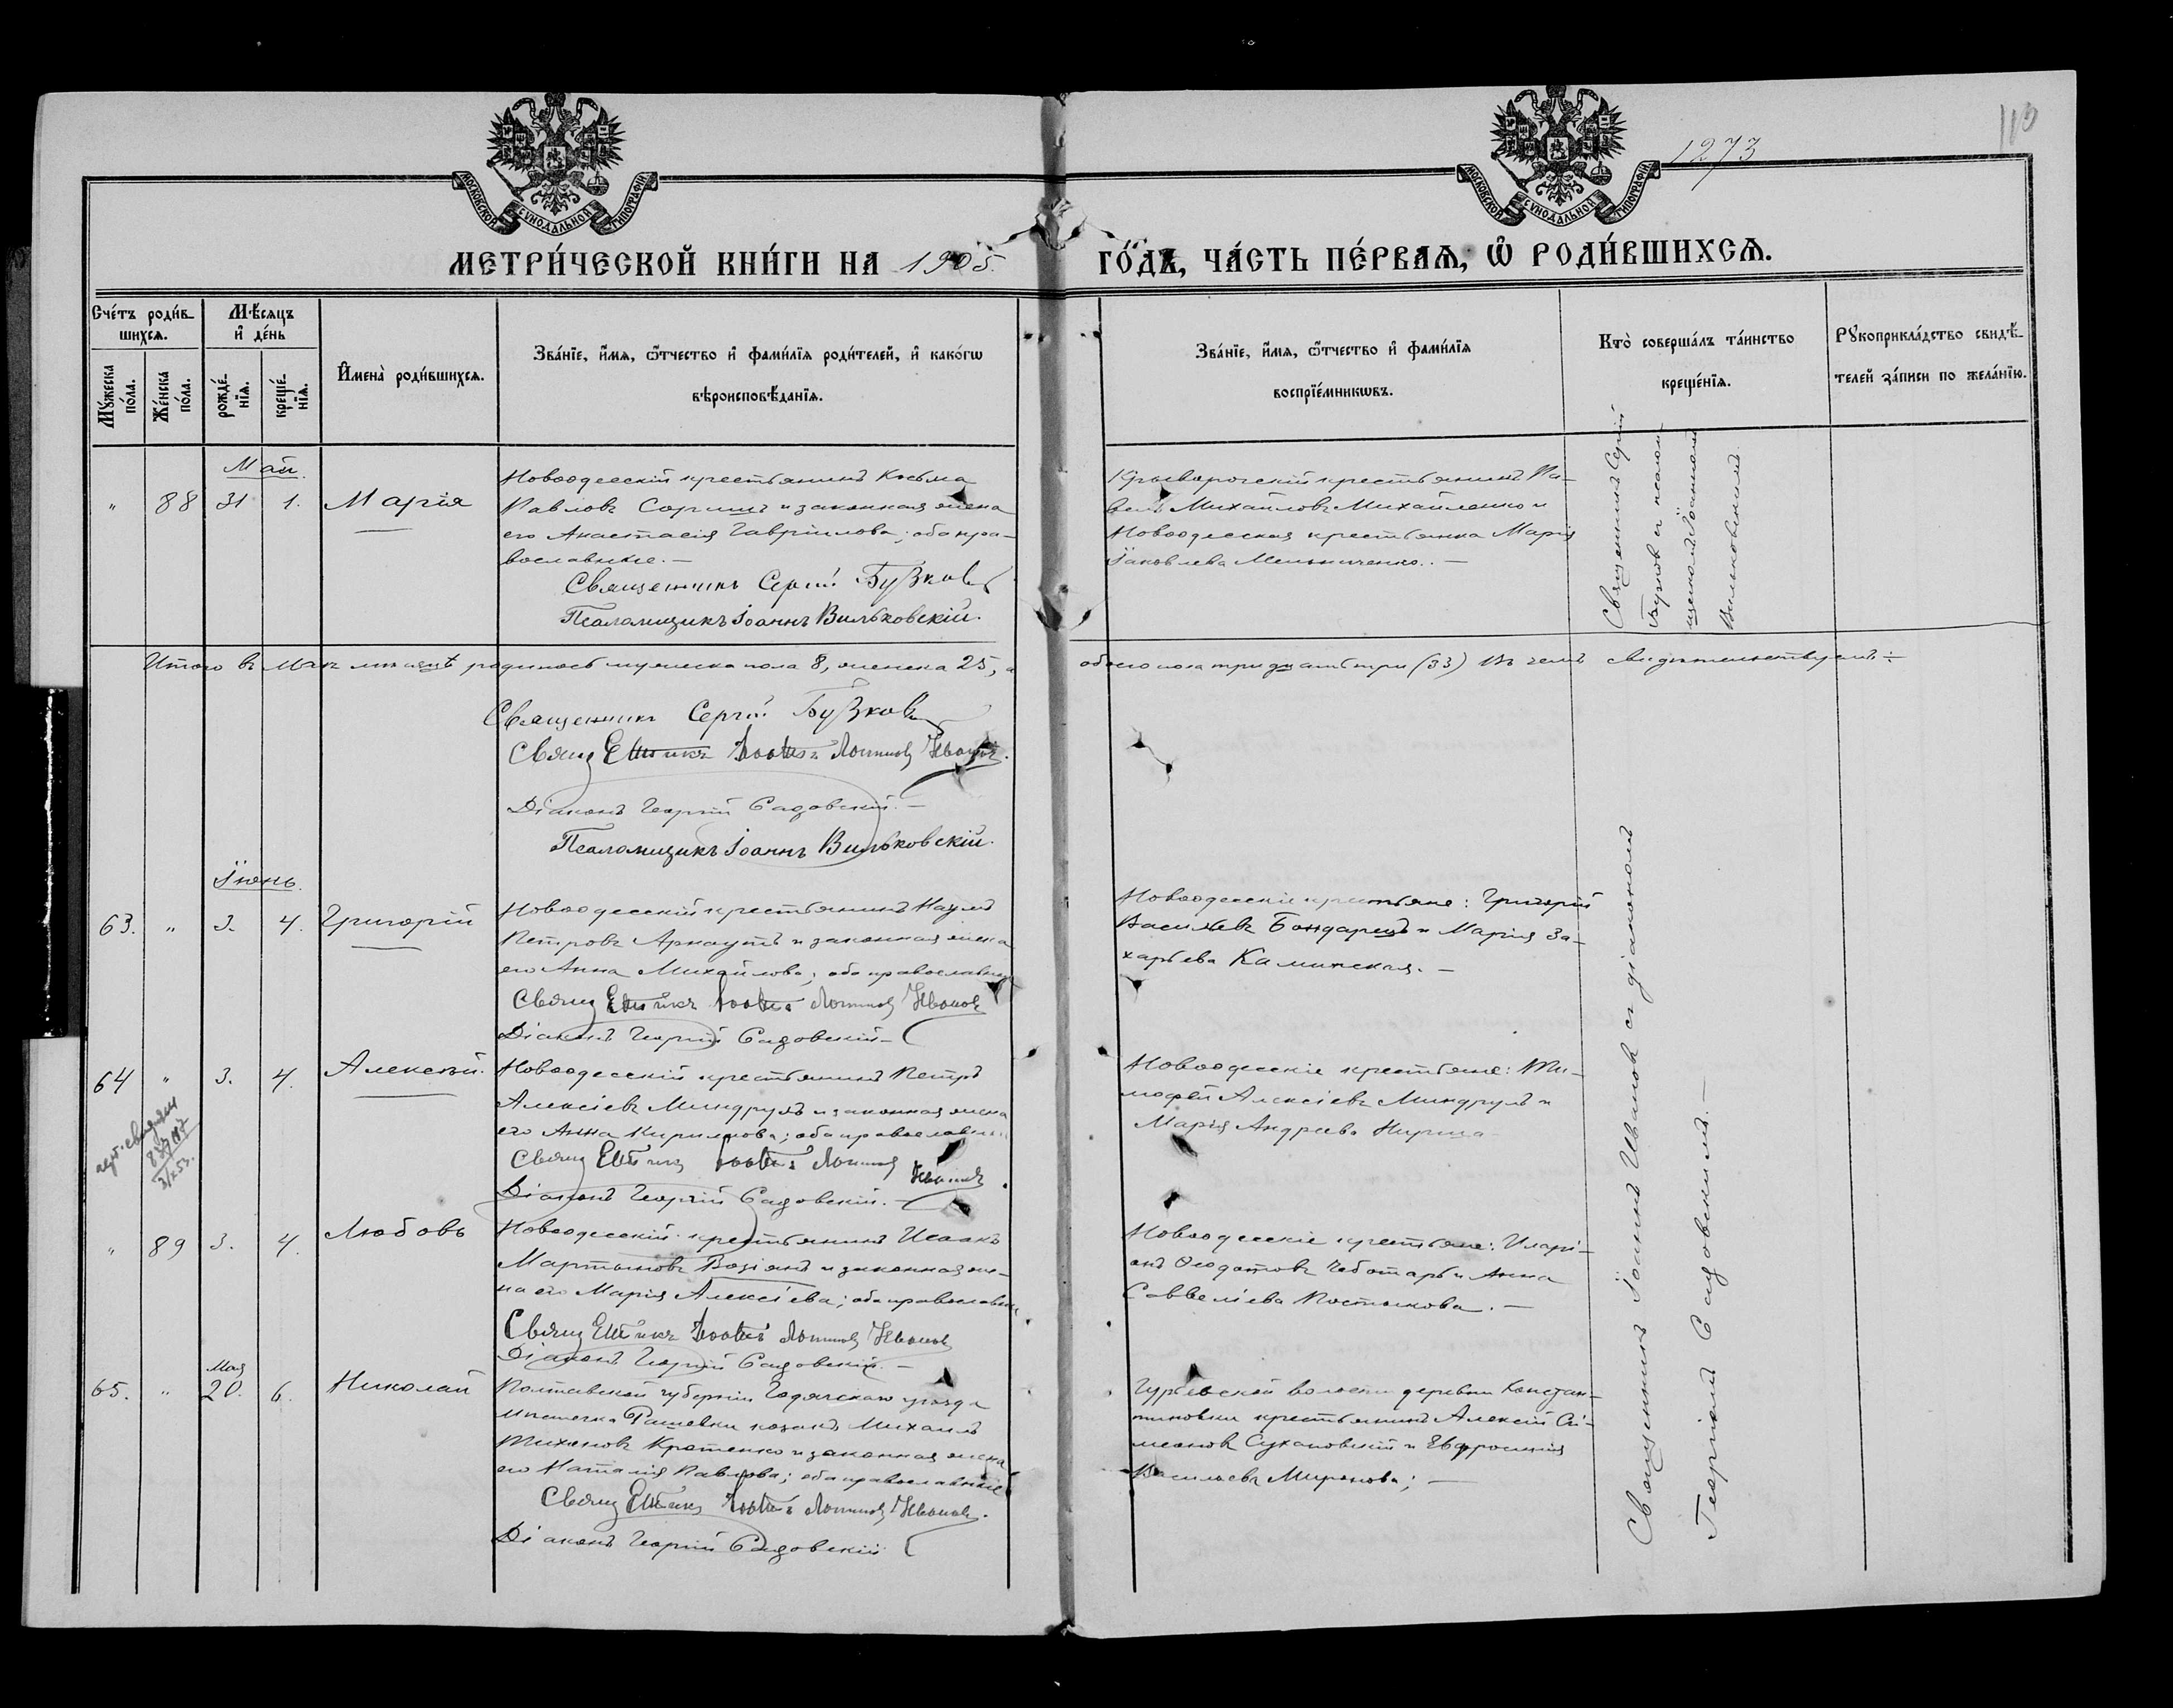 110
1273
МОСКОВСКОЙ СѴНОДАЛЬНОЙ ТИПОГРАФІИ
МОСКОВСКОЙ СѴНОДАЛЬНОЙ ТИПОГРАФІИ
МЕТРИ́ЧЕСКОЙ КНИ́ГИ НА 1905. ГО́ДЪ, ЧА́СТЬ ПЕ́РВАѦ, Ѽ РОДИ́ВШИХСѦ.
Сче́тъ роди́в-
шихсѧ.
Мꙋ́жеска по́ла.
Же́нска по́ла.
Мѣ́сѧцъ
и҆ де́нь
рожде́-
нїѧ.
креще́-
нїѧ.
И҆мена̀ роди́вшихсѧ.
Зва́нїе, и҆́мѧ, ѻ҆́тчество и҆ фами́лїѧ роди́телей, и҆ како́гѡ
вѣроисповѣ́данїѧ.
Зва́нїе, и҆́мѧ, ѻ҆́тчество и҆ фами́лїѧ
воспрїе́мникѡвъ.
Кто̀ соверша́лъ та́инство
креще́нїѧ.
Рꙋкоприкла́дство свидѣ́-
телей за́писи по жела́нїю.
Май.
" 88 31 1. Марія
Новоодесскій крестьянинъ Косьма
Павловъ и законная жена
его Анастасія Гавріилова; оба пра-
вославные.—
Священникъ Сергій Бузковъ
Псаломщикъ Іоаннъ Вильковскій.
Криворогскій крестьянинъ Па-
велъ Михайловъ Михайленко и
Новоодесская крестьянка Марія
Іаковлева Мельниченко.—
Священникъ Сергій
Бузковъ съ псалом-
щикомъ Іоанномъ
Вильковскимъ.
Итого въ Маѣ мѣсяцѣ родилось мужеска пола 8, женска 25, а обоего пола тридцать три (33) Въ чемъ свидѣтельствуемъ:
Священникъ Сергій Бузковъ
Священникъ Іоаннъ Ивановъ.
Діаконъ Георгій Садовскій.—
Псаломщикъ Іоаннъ Вильковскій.
Іюнь.
63. " 3. 4. Григорій
Новоодесскій крестьянинъ Наумъ
Петровъ Арнаутъ и законная жена
его Анна Михайлова; оба православные
Священникъ Іоаннъ Ивановъ
Діаконъ Георгій Садовскій—
Новоодесскіе крестьяне: Григорій
Васильевъ Бондарецъ и Марія За-
харьева Каминская.—
64 " 3. 4. Алексѣй.
Новоодесскій крестьянинъ Петръ
Алексіевъ Миндрулъ и законная жена
его Анна Кириллова; оба православные
Священникъ Іоаннъ Ивановъ
Діаконъ Георгій Садовскій.—
Новоодесскіе крестьяне: Ти-
мофей Алексіевъ Миндрулъ и
Марія Андреева
" 89 3. 4. Любовь
Новоодесскій крестьянинъ Исаакъ
Мартыновъ Возіянъ и законная же-
на его Марія Алексіева; оба православные
Священникъ Іоаннъ Ивановъ
Діаконъ Георгій Садовскій.—
Новоодесскіе крестьяне: Иларі-
онъ Ѳеодотовъ Чеботарь и Анна
Саввеліева Постникова.—
Мая
65. " 20. 6. Николай
Полтавской губерніи Гадячскаго уѣзда
мѣстечка Рашевки козакъ Михаилъ
Тихоновъ Кротенко и законная жена
его Наталія Павлова; оба православные
Священникъ Іоаннъ Ивановъ.
Діаконъ Георгій Садовскій
Гурьевской волости деревни Констан-
тиновки крестьянинъ Алексій Си-
меоновъ Сухановскій и Евфросинія
Васильева Миронова;—
Священникъ Іоаннъ Ивановъ съ діакономъ
Георгіемъ Садовскимъ.—